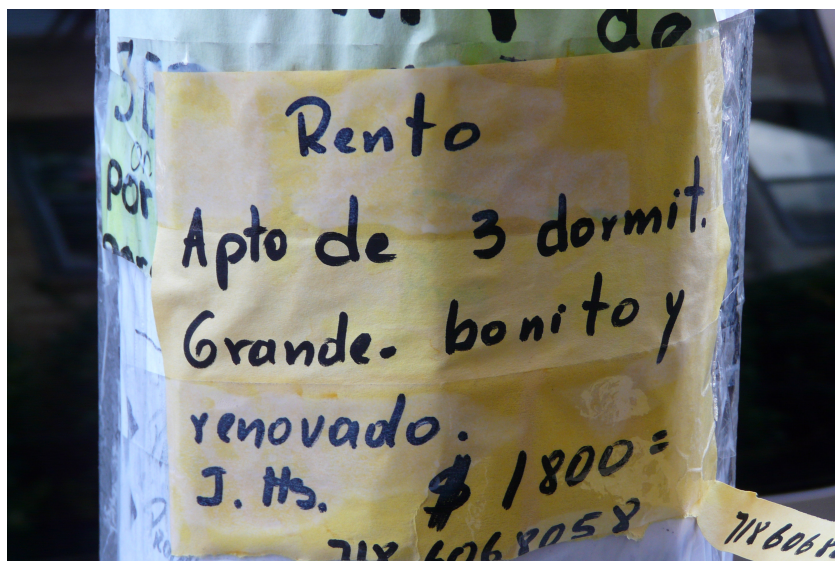 de
3
por
Rento
Apto de 3 dormit.
Grande. bonito y
renovado.
J. Hs. $ 1800=
718 6068058
718 6068